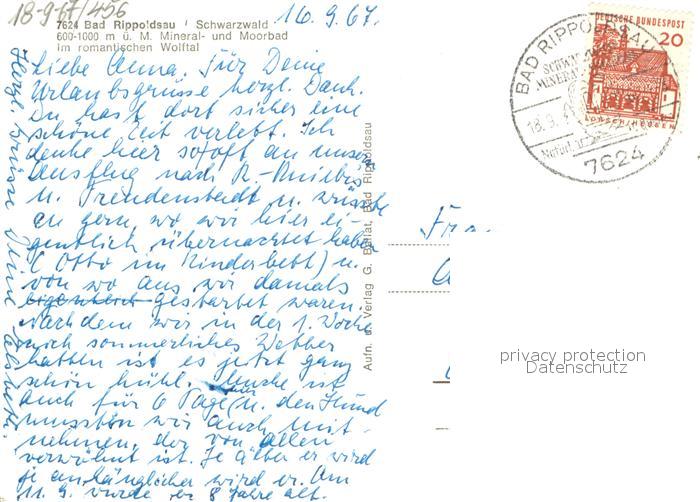 18-917/456
7624 Bad Rippoldsau / Schwarzwald
600-1000 m ü. M. Mineral- und Moorbad
Im romantischen Wolftal
16.9.67.
Liebe Anna. Für Deine
Urlaubsgrüsse herzl. Dank.
Du hast dort sicher eine
schöne Zeit verlebt. Ich
denke hier so oft an unsern
Ausflug nach R.-Kniebis
u. Freudenstadt u. wüsste
zu gern, wo wir hier ei-
gentlich übernachtet haben
(Otto im Kinderbett) u.
von wo aus wir damals
eigentlich gestartet waren.
Nachdem wir in der 1. Woche
noch sommerliches Wetter
hatten ist es jetzt ganz
schön kühl. ist
auch für 6 Tage u. den Hund
mussten wir auch mit-
nehmen, der von allen
verwöhnt ist. Je älter er wird
je anhänglicher wird er. Am
11.9. wurde er 8 Jahre alt.
Herzl. Grüsse Deine
Aufn. u. Verlag G. Bad Rippoldsau
DEUTSCHE BUNDESPOST
20
LORSCH/HESSEN
BAD RIPPOLDSAU
MINERAL
18.9.
7624
Frau
privacy protection
Datenschutz